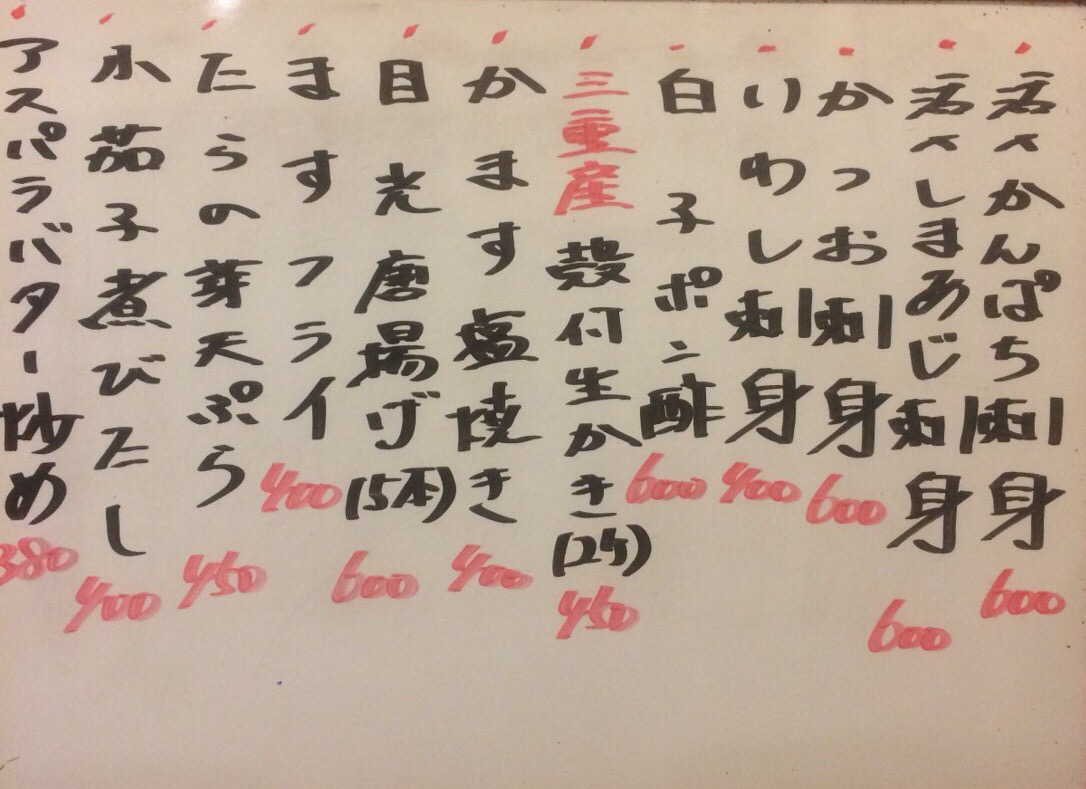 かんぱち刺身 600
しまあじ刺身 600
かつお刺身 600
いわし刺身 400
白子ポン酢 600
三重産殻付生かき(2ケ) 450
かます塩焼き 400
目光唐揚げ(5本) 600
ますフライ 400
たらの芽天ぷら 450
小茄子煮びたし 400
アスパラバター炒め 380